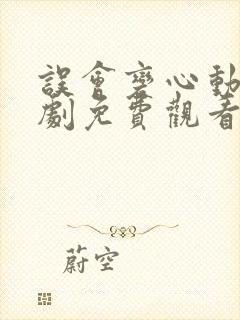 誤會變心動
劇免費觀看
蔚空